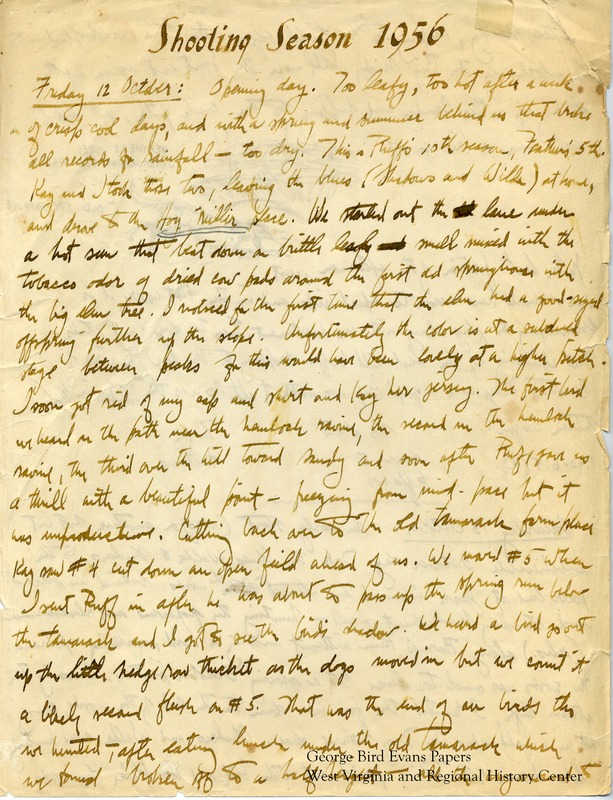 Shooting Season 1956
Friday 12 October: Opening day. Too leafy, too hot after a week
of crisp cool days, and with a spring and summer behind us that broke
all records for rainfall — too dry. This is Ruff's 10th season, Feathers 5th.
Kay and I took those two, leaving the blues (Shadows and Wilda) at home,
and drove to the Hoy Miller place. We started out the lane under
a hot sun that beat down on brittle leafy smell mixed with the
tobacco odor of dried cow pads around the first old springhouse with
the big elm tree. I noticed for the first time that the elm had a good-sized
offspring further up the slope. Unfortunately the color is at a subdued
stage between peaks for this would have been lovely at a higher pitch.
I soon got rid of my cap and shirt and Kay her jersey. The first bird
we heard on the path near the hemlock ravine, the second in the hemlock
ravine, the third over the hill toward and soon after Ruff gave us
a thrill with a beautiful point — freezing from mid-pace but it
was unproductive. Cutting back over to the old tamarack farm place
Kay saw #4 cut down an open field ahead of us. We moved #5 when
I sent Ruff in after he was about to pass up the spring run below
the tamarack and I got to see the bird's shadow. We heard a bird go out
up the little hedge row thicket as the dogs moved in but we count it
a likely second flush on #5. That was the end of our birds tho
we hunted — after eating lunch under the old tamarack which
we found broken off to a half
George Bird Evans Papers
West Virginia and Regional History Center